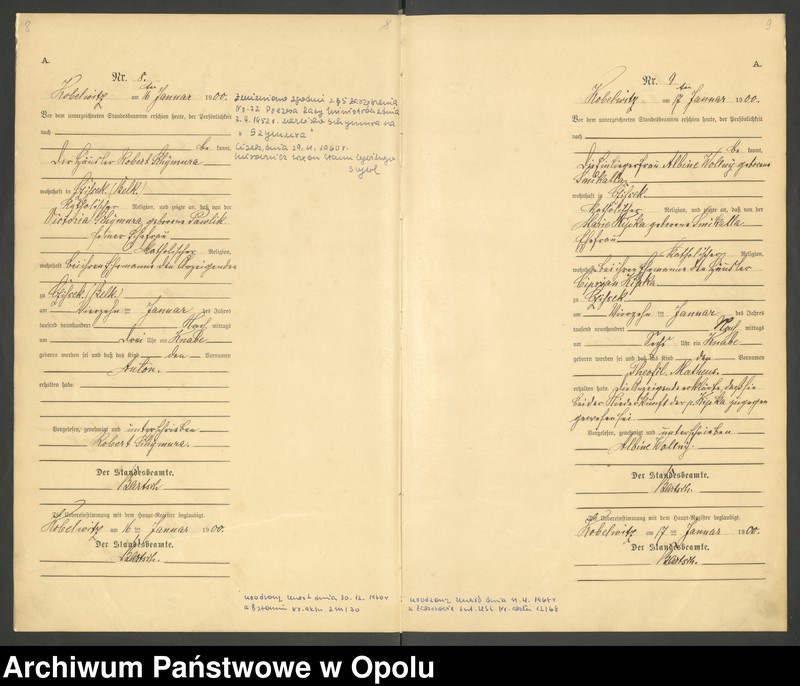 8
8
A.
Nr. 8.
Kobelwitz am 16 ten Januar 1900.
Vor dem unterzeichneten Standesbeamten erschien heute, der Persönlichkeit
nach
be kannt,
der Händler Robert Schymura
wohnhaft in
Katholischer Religion, und zeigte an, daß von der
Victoria Schymura, geborene Pawlik
seiner Ehefrau
Katholischer Religion,
wohnhaft bei ihrem Ehemanne dem Anzeigenden
zu
am Vierzehn ten Januar des Jahres
tausend neunhundert Nach mittags
um Drei Uhr ein Knabe
geboren worden sei und daß das Kind den Vornamen
Anton.
erhalten habe
Vorgelesen, genehmigt und unterschrieben
Robert Schymura.
Der Standesbeamte.
Bartsch
Die Uebereinstimmung mit dem Haupt-Register beglaubigt.
Kobelwitz am 16 ten Januar 1900.
Der Standesbeamte.
Bartsch.
Zmieniono zgodnie z § 5 zarządzenia
Nr. 22 Prezesa Rady Ministrów z dnia
1952 r. nazwisko Schymura na
"Szymura"
dnia 29.11.1960 r.
Kierownik Urzędu Stanu Cywilnego
Urodzony zmarł dnia 30.12.1960 r
9
A.
Nr. 9
Kobelwitz am 17 ten Januar 1900.
Vor dem unterzeichneten Standesbeamten erschien heute, der Persönlichkeit
nach
be kannt,
die Einliegerfrau Albine Wollny geborene
Smikalla
wohnhaft in
Katholischer Religion, und zeigte an, daß von der
Marie geborene Smikalla
Ehefrau
Katholischer Religion,
wohnhaft bei ihrem Ehemanne dem Händler
zu
am Vierzehn ten Januar des Jahres
tausend neunhundert Nach mittags
um Sechs Uhr ein Knabe
geboren worden sei und daß das Kind den Vornamen
Theofil Matheus.
erhalten habe. Die Anzeigende erklärte, daß sie
bei der Niederkunft der p. zugegen
gewesen sei.
Vorgelesen, genehmigt und unterschrieben
Albine Wollny.
Der Standesbeamte.
Bartsch.
Die Uebereinstimmung mit dem Haupt-Register beglaubigt.
Kobelwitz am 17 ten Januar 1900.
Der Standesbeamte.
Bartsch.
Urodzony zmarł dnia 11.4.1968 r
Archiwum Państwowe w Opolu